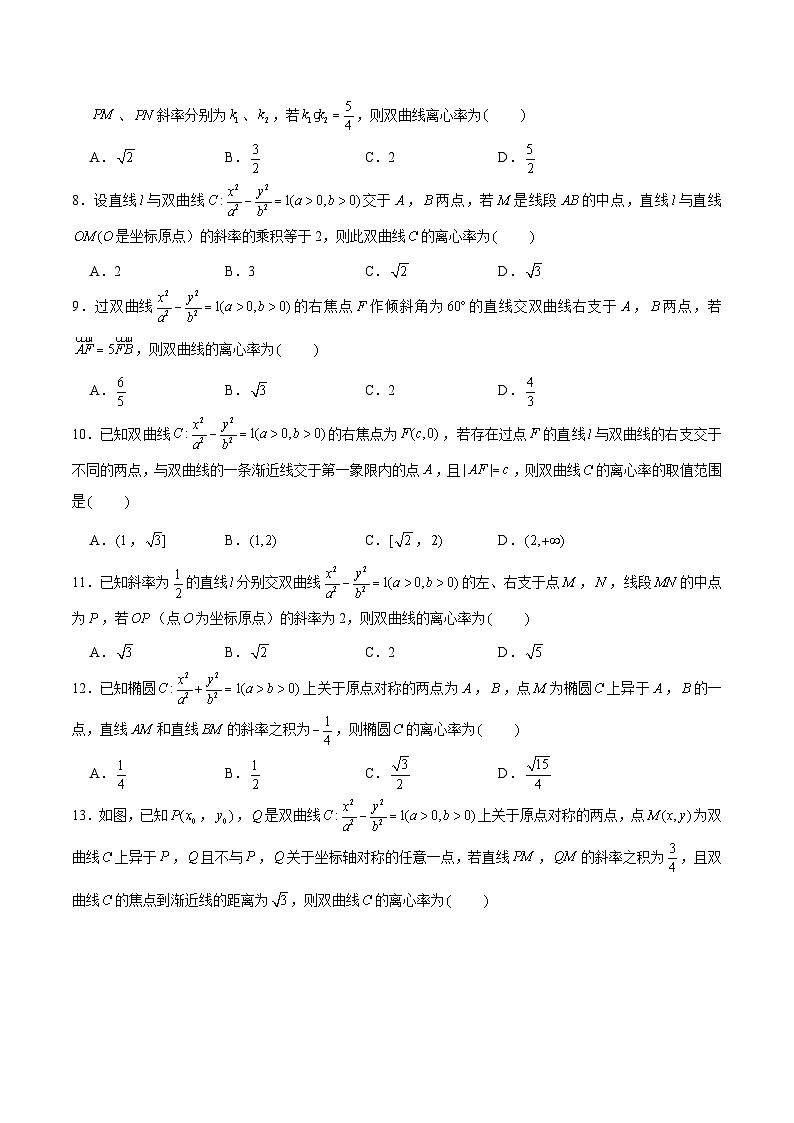 PM 、 PN 斜率分别为 k₁ 、 k₂ ，若 k₁gk₂ = 5/4 ，则双曲线离心率为(　　)
A．√2　　B．3/2　　C．2　　D．5/2
8．设直线 l 与双曲线 C : x²/a² − y²/b² = 1(a > 0, b > 0) 交于 A ， B 两点，若 M 是线段 AB 的中点，直线 l 与直线
OM (O 是坐标原点）的斜率的乘积等于 2，则此双曲线 C 的离心率为(　　)
A．2　　B．3　　C．√2　　D．√3
9．过双曲线 x²/a² − y²/b² = 1(a > 0, b > 0) 的右焦点 F 作倾斜角为 60° 的直线交双曲线右支于 A ， B 两点，若
AF = 5FB ，则双曲线的离心率为(　　)
A．6/5　　B．√3　　C．2　　D．4/3
10．已知双曲线 C : x²/a² − y²/b² = 1(a > 0, b > 0) 的右焦点为 F(c,0) ，若存在过点 F 的直线 l 与双曲线的右支交于
不同的两点，与双曲线的一条渐近线交于第一象限内的点 A ，且 | AF |= c ，则双曲线 C 的离心率的取值范围
是(　　)
A．(1 ， √3]　　B．(1, 2)　　C．[√2 ， 2)　　D．(2, +∞)
11．已知斜率为 1/2 的直线 l 分别交双曲线 x²/a² − y²/b² = 1(a > 0, b > 0) 的左、右支于点 M ， N ，线段 MN 的中点
为 P ，若 OP （点 O 为坐标原点）的斜率为 2，则双曲线的离心率为(　　)
A．√3　　B．√2　　C．2　　D．√5
12．已知椭圆 C : x²/a² + y²/b² = 1(a > b > 0) 上关于原点对称的两点为 A ， B ，点 M 为椭圆 C 上异于 A ， B 的一
点，直线 AM 和直线 BM 的斜率之积为 −1/4 ，则椭圆 C 的离心率为(　　)
A．1/4　　B．1/2　　C．√3/2　　D．√15/4
13．如图，已知 P(x₀ ， y₀) ， Q 是双曲线 C : x²/a² − y²/b² = 1(a > 0, b > 0) 上关于原点对称的两点，点 M(x, y) 为双
曲线 C 上异于 P ， Q 且不与 P ， Q 关于坐标轴对称的任意一点，若直线 PM ， QM 的斜率之积为 3/4 ，且双
曲线 C 的焦点到渐近线的距离为 √3 ，则双曲线 C 的离心率为(　　)